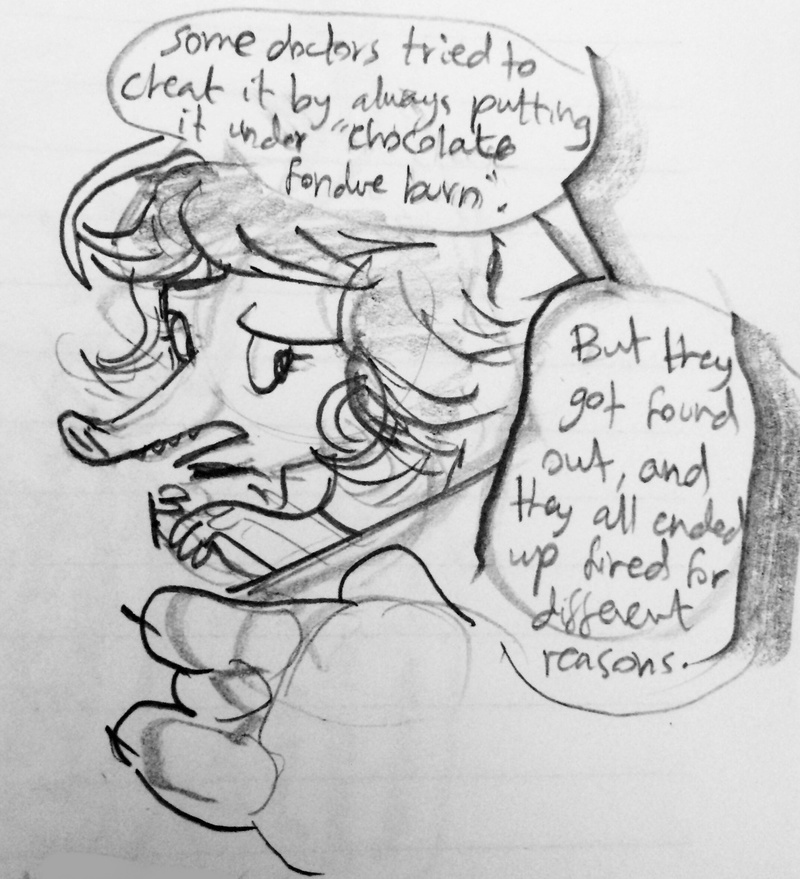 some doctors tried to
cheat it by always putting
it under "chocolate
fondue burn".
But they
got found
out, and
they all ended
up fired for
different
reasons.